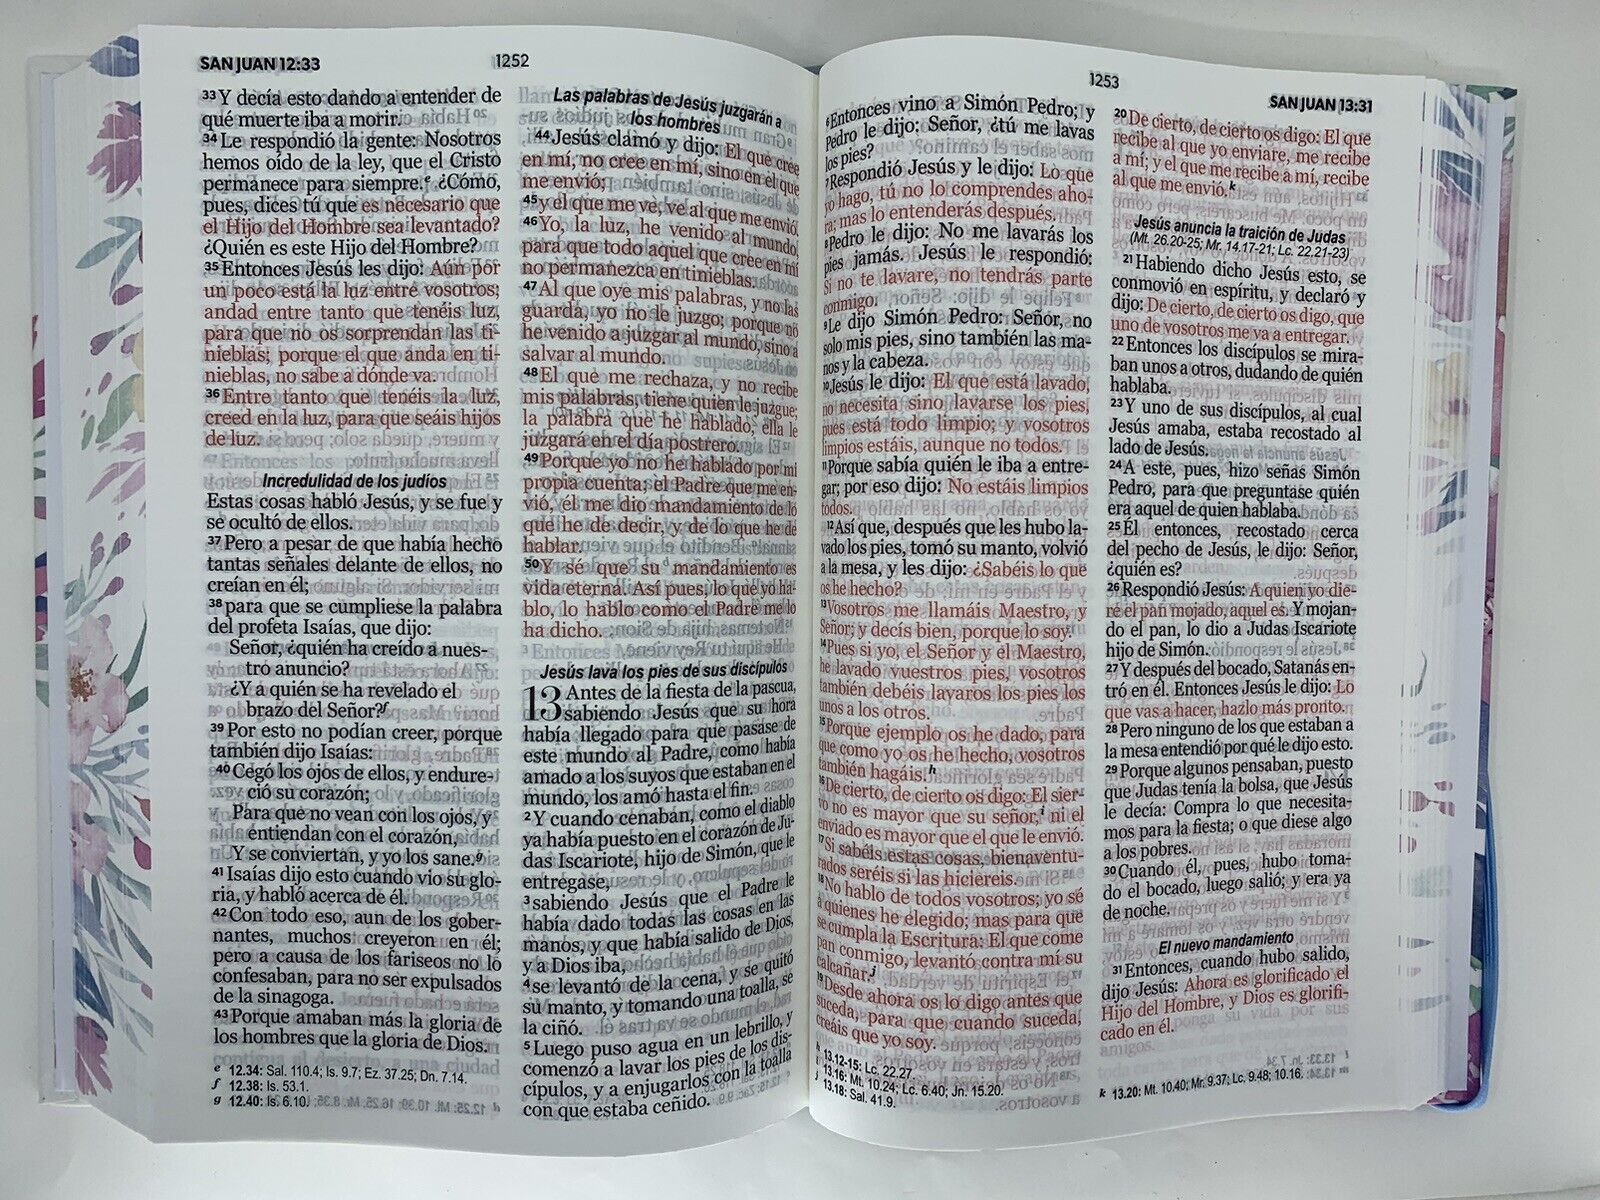 SAN JUAN 12:33
1252
33 Y decía esto dando a entender de
qué muerte iba a morir.
34 Le respondió la gente: Nosotros
hemos oído de la ley, que el Cristo
permanece para siempre.e ¿Cómo,
pues, dices tú que es necesario que
el Hijo del Hombre sea levantado?
¿Quién es este Hijo del Hombre?
35 Entonces Jesús les dijo: Aún por
un poco está la luz entre vosotros;
andad entre tanto que tenéis luz,
para que no os sorprendan las ti-
nieblas; porque el que anda en ti-
nieblas, no sabe a dónde va.
36 Entre tanto que tenéis la luz,
creed en la luz, para que seáis hijos
de luz.
Incredulidad de los judíos
Estas cosas habló Jesús, y se fue y
se ocultó de ellos.
37 Pero a pesar de que había hecho
tantas señales delante de ellos, no
creían en él;
38 para que se cumpliese la palabra
del profeta Isaías, que dijo:
Señor, ¿quién ha creído a nues-
tro anuncio?
¿Y a quién se ha revelado el
brazo del Señor?f
39 Por esto no podían creer, porque
también dijo Isaías:
40 Cegó los ojos de ellos, y endure-
ció su corazón;
Para que no vean con los ojos, y
entiendan con el corazón,
Y se conviertan, y yo los sane.g
41 Isaías dijo esto cuando vio su glo-
ria, y habló acerca de él.
42 Con todo eso, aun de los gober-
nantes, muchos creyeron en él;
pero a causa de los fariseos no lo
confesaban, para no ser expulsados
de la sinagoga.
43 Porque amaban más la gloria de
los hombres que la gloria de Dios.
e 12.34: Sal. 110.4; Is. 9.7; Ez. 37.25; Dn. 7.14.
f 12.38: Is. 53.1.
g 12.40: Is. 6.10.
Las palabras de Jesús juzgarán a
los hombres
44 Jesús clamó y dijo: El que cree
en mí, no cree en mí, sino en el que
me envió;
45 y el que me ve, ve al que me envió.
46 Yo, la luz, he venido al mundo,
para que todo aquel que cree en mí
no permanezca en tinieblas.
47 Al que oye mis palabras, y no las
guarda, yo no le juzgo; porque no
he venido a juzgar al mundo, sino a
salvar al mundo.
48 El que me rechaza, y no recibe
mis palabras, tiene quien le juzgue;
la palabra que he hablado, ella le
juzgará en el día postrero.
49 Porque yo no he hablado por mi
propia cuenta; el Padre que me en-
vió, él me dio mandamiento de lo
que he de decir, y de lo que he de
hablar.
50 Y sé que su mandamiento es
vida eterna. Así pues, lo que yo ha-
blo, lo hablo como el Padre me lo
ha dicho.
Jesús lava los pies de sus discípulos
13 Antes de la fiesta de la pascua,
sabiendo Jesús que su hora
había llegado para que pasase de
este mundo al Padre, como había
amado a los suyos que estaban en el
mundo, los amó hasta el fin.
2 Y cuando cenaban, como el diablo
ya había puesto en el corazón de Ju-
das Iscariote, hijo de Simón, que le
entregase,
3 sabiendo Jesús que el Padre le
había dado todas las cosas en las
manos, y que había salido de Dios,
y a Dios iba,
4 se levantó de la cena, y se quitó
su manto, y tomando una toalla, se
la ciñó.
5 Luego puso agua en un lebrillo, y
comenzó a lavar los pies de los dis-
cípulos, y a enjugarlos con la toalla
con que estaba ceñido.
1253
SAN JUAN 13:31
6 Entonces vino a Simón Pedro; y
Pedro le dijo: Señor, ¿tú me lavas
los pies?
7 Respondió Jesús y le dijo: Lo que
yo hago, tú no lo comprendes aho-
ra; mas lo entenderás después.
8 Pedro le dijo: No me lavarás los
pies jamás. Jesús le respondió:
Si no te lavare, no tendrás parte
conmigo.
9 Le dijo Simón Pedro: Señor, no
solo mis pies, sino también las ma-
nos y la cabeza.
10 Jesús le dijo: El que está lavado,
no necesita sino lavarse los pies,
pues está todo limpio; y vosotros
limpios estáis, aunque no todos.
11 Porque sabía quién le iba a entre-
gar; por eso dijo: No estáis limpios
todos.
12 Así que, después que les hubo la-
vado los pies, tomó su manto, volvió
a la mesa, y les dijo: ¿Sabéis lo que
os he hecho?
13 Vosotros me llamáis Maestro, y
Señor; y decís bien, porque lo soy.
14 Pues si yo, el Señor y el Maestro,
he lavado vuestros pies, vosotros
también debéis lavaros los pies los
unos a los otros.
15 Porque ejemplo os he dado, para
que como yo os he hecho, vosotros
también hagáis.h
16 De cierto, de cierto os digo: El sier-
vo no es mayor que su señor,i ni el
enviado es mayor que el que le envió.
17 Si sabéis estas cosas, bienaventu-
rados seréis si las hiciereis.
18 No hablo de todos vosotros; yo sé
a quienes he elegido; mas para que
se cumpla la Escritura: El que come
pan conmigo, levantó contra mí su
calcañar.j
19 Desde ahora os lo digo antes que
suceda, para que cuando suceda,
creáis que yo soy.
h 13.12-15: Lc. 22.27.
i 13.16: Mt. 10.24; Lc. 6.40; Jn. 15.20.
j 13.18: Sal. 41.9.
20 De cierto, de cierto os digo: El que
recibe al que yo enviare, me recibe
a mí; y el que me recibe a mí, recibe
al que me envió.k
Jesús anuncia la traición de Judas
(Mt. 26.20-25; Mr. 14.17-21; Lc. 22.21-23)
21 Habiendo dicho Jesús esto, se
conmovió en espíritu, y declaró y
dijo: De cierto, de cierto os digo, que
uno de vosotros me va a entregar.
22 Entonces los discípulos se mira-
ban unos a otros, dudando de quién
hablaba.
23 Y uno de sus discípulos, al cual
Jesús amaba, estaba recostado al
lado de Jesús.
24 A este, pues, hizo señas Simón
Pedro, para que preguntase quién
era aquel de quien hablaba.
25 Él entonces, recostado cerca
del pecho de Jesús, le dijo: Señor,
¿quién es?
26 Respondió Jesús: A quien yo die-
re el pan mojado, aquel es. Y mojan-
do el pan, lo dio a Judas Iscariote
hijo de Simón.
27 Y después del bocado, Satanás en-
tró en él. Entonces Jesús le dijo: Lo
que vas a hacer, hazlo más pronto.
28 Pero ninguno de los que estaban a
la mesa entendió por qué le dijo esto.
29 Porque algunos pensaban, puesto
que Judas tenía la bolsa, que Jesús
le decía: Compra lo que necesita-
mos para la fiesta; o que diese algo
a los pobres.
30 Cuando él, pues, hubo toma-
do el bocado, luego salió; y era ya
de noche.
El nuevo mandamiento
31 Entonces, cuando hubo salido,
dijo Jesús: Ahora es glorificado el
Hijo del Hombre, y Dios es glorifi-
cado en él.
k 13.20: Mt. 10.40; Mr. 9.37; Lc. 9.48; 10.16.